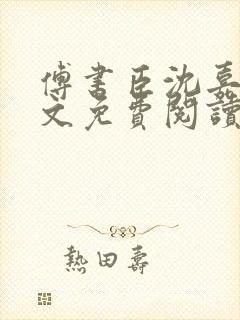 傅書臣沈嘉
文免費閱讀
熱田壽